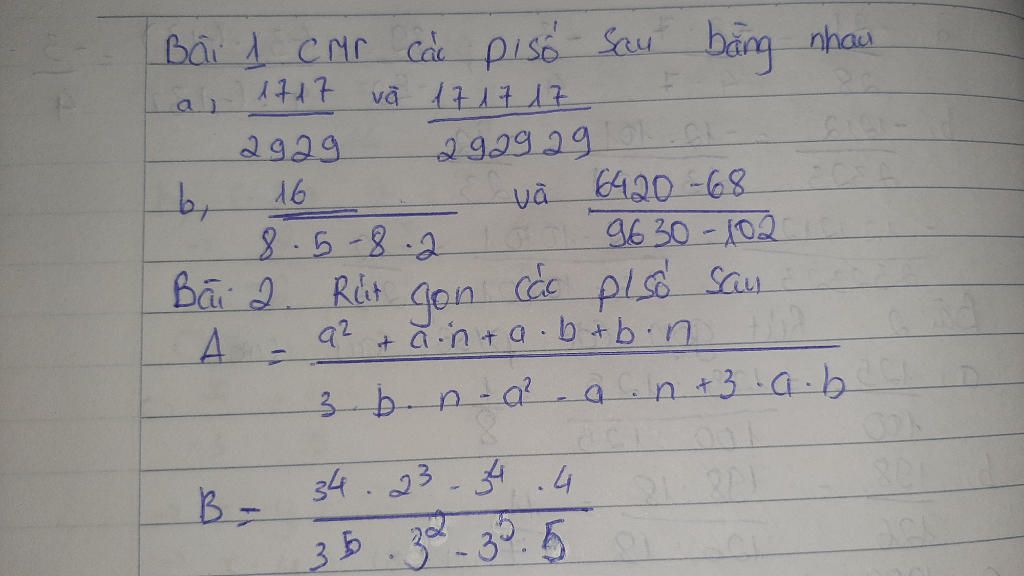 Bài 1 CMr các p/số sau bằng nhau
a, 1717/2929 và 171717/292929
b, 16/(8 . 5 - 8 . 2) và (6420 - 68)/(9630 - 102)
Bài 2. Rút gọn các p/số sau
A = (a² + a.n + a.b + b.n)/(3.b.n - a² - a.n + 3.a.b)
B = (3⁴ . 2³ - 3⁴ . 4)/(3⁵ . 3² - 3⁵ . 5)